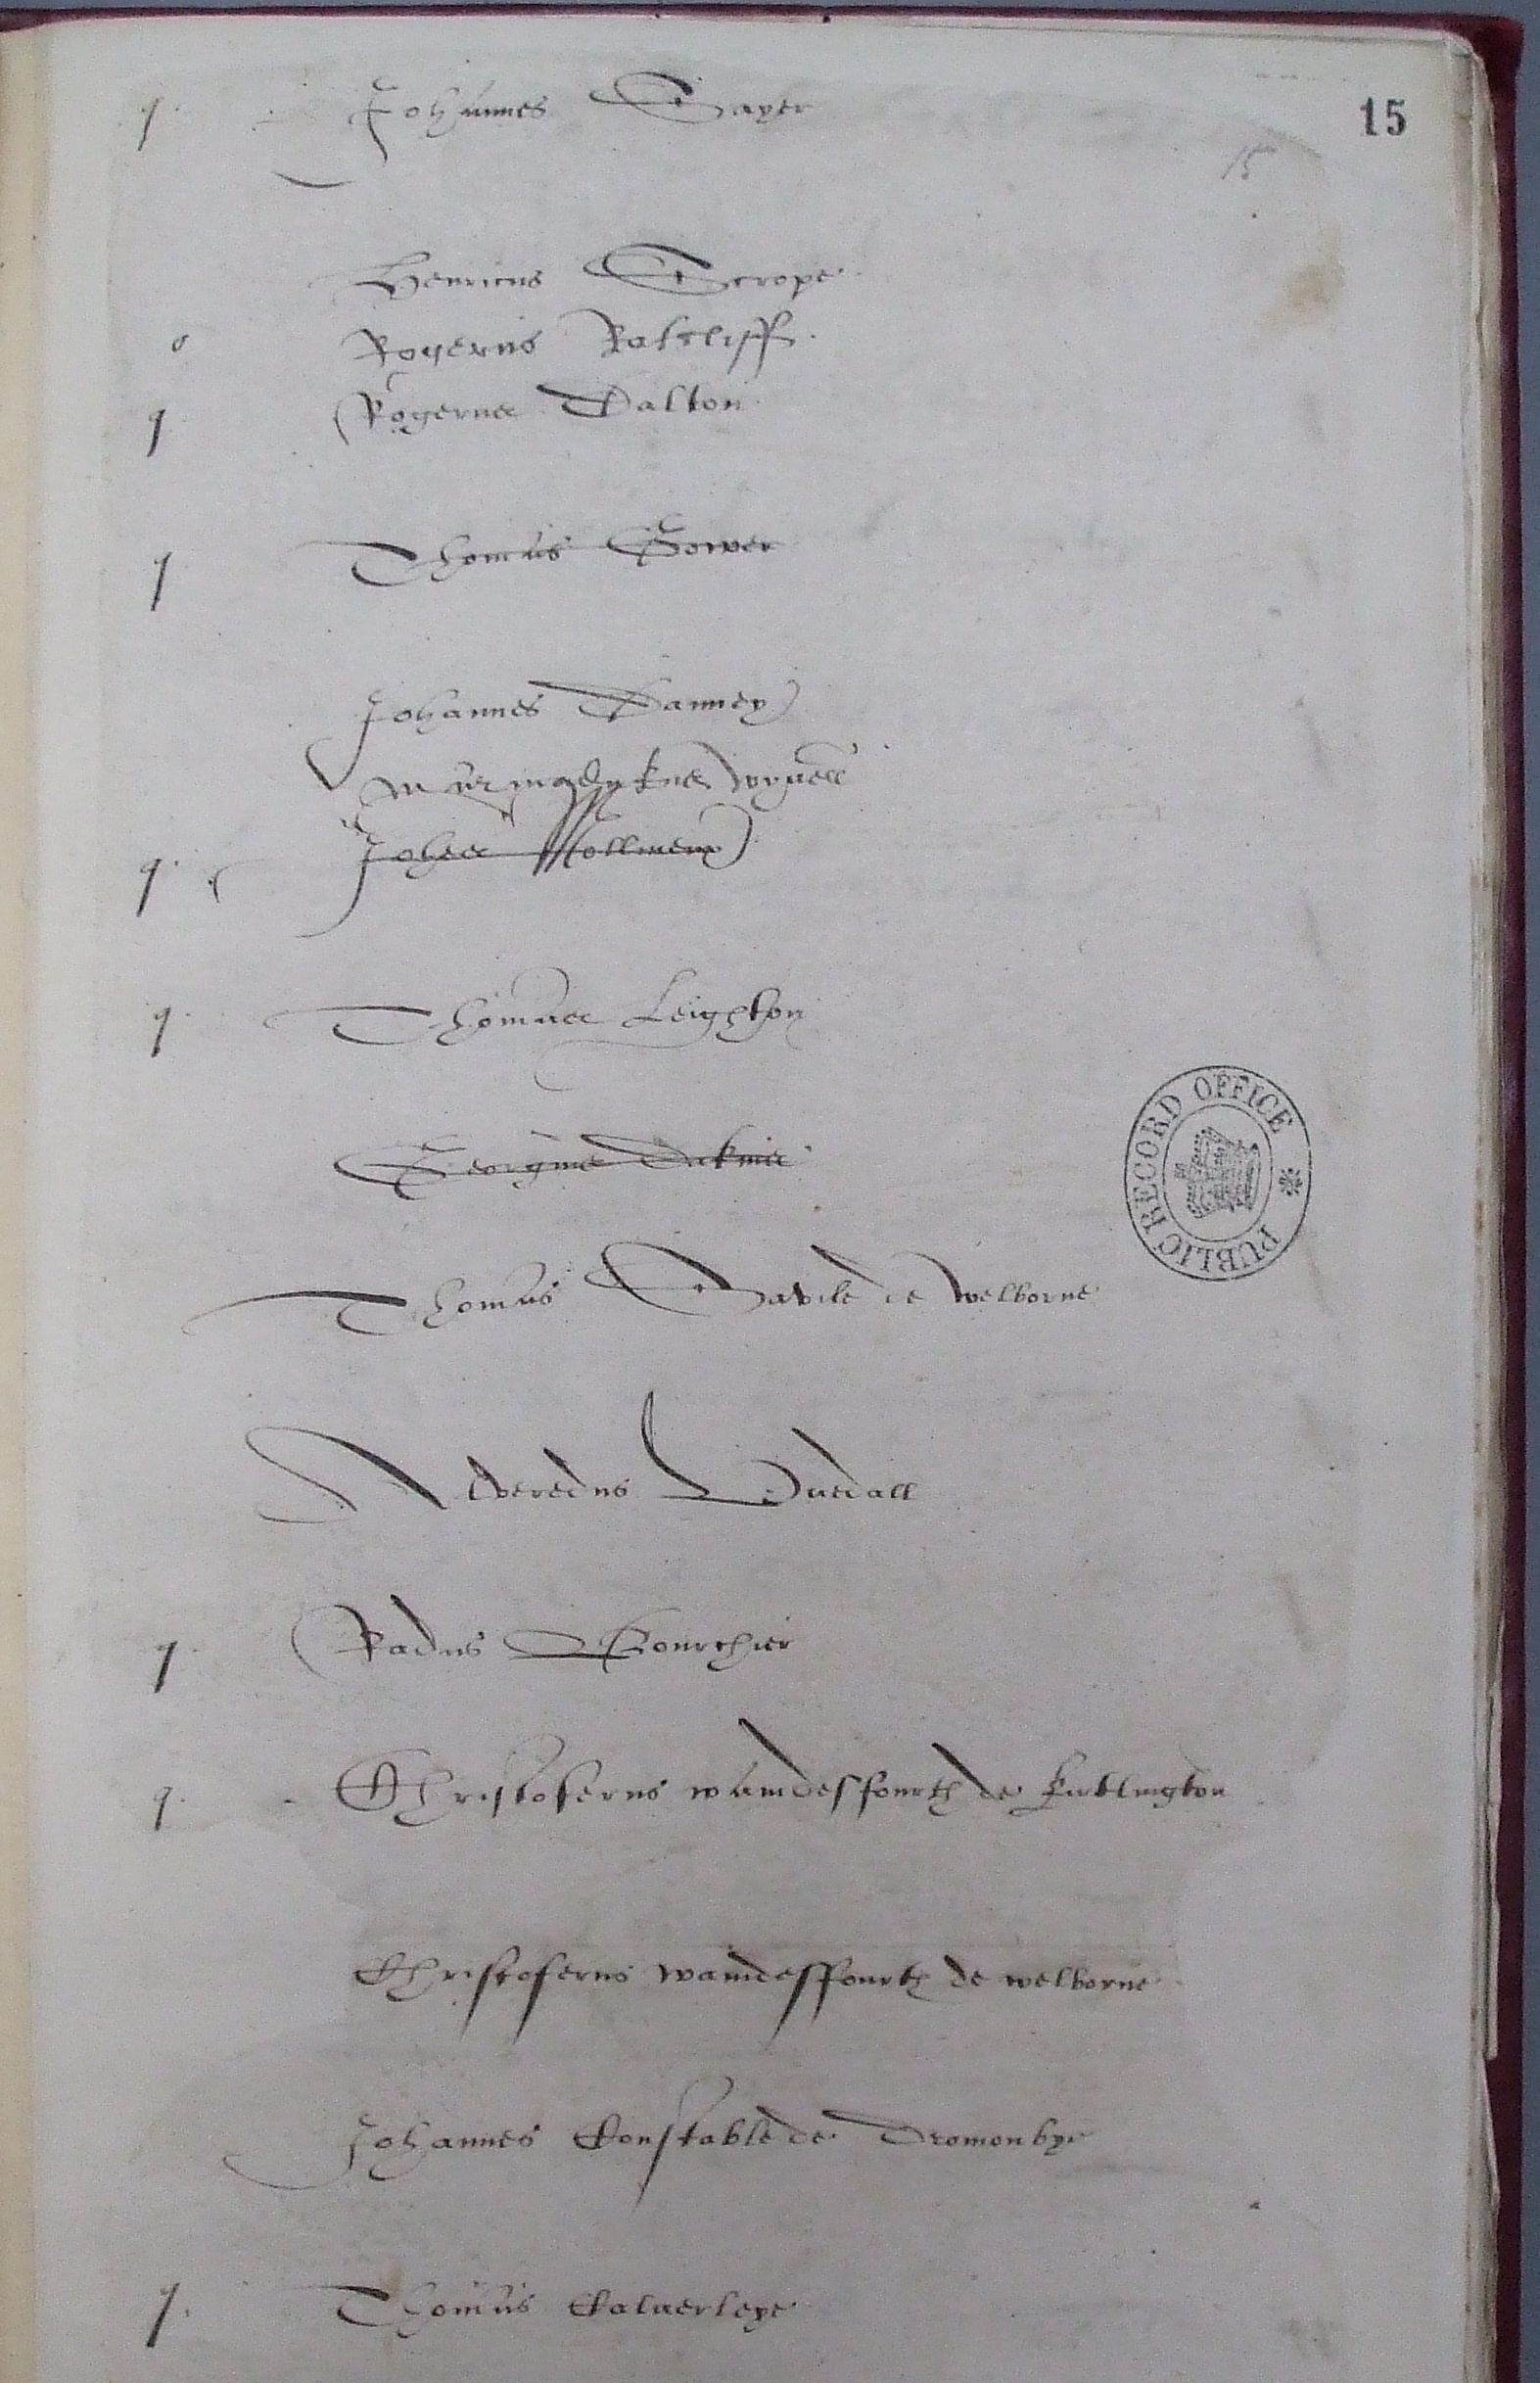 q Johannes Sayer
15
15
Henricus Scrope
o Rogerus Ratcliff
q Rogerus Dalton
q Thomas Gower
Johannes Dawney
Marmadukus Wyvell
q Johes Mollineux
q Thomas Leighton
Georgius Dakins
Thomas Savile de Welborne
Alveredus Uvedall
q Radus Bourchier
q Christoferus Wandesfourth de Kirtlington
Christoferus Wandesfourth de Welborne
Johannes Constable de Dromonbye
q Thomas Calverleye
PUBLIC RECORD OFFICE